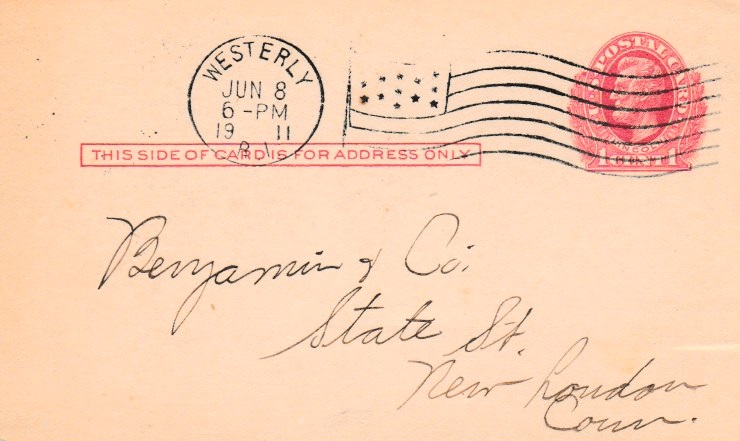 WESTERLY
JUN 8
6-PM
19 11
R.I.
U.S. POSTAL CARD
LINCOLN
1 CENT 1
THIS SIDE OF CARD IS FOR ADDRESS ONLY
Benjamin & Co.
State St.
New London
Conn.